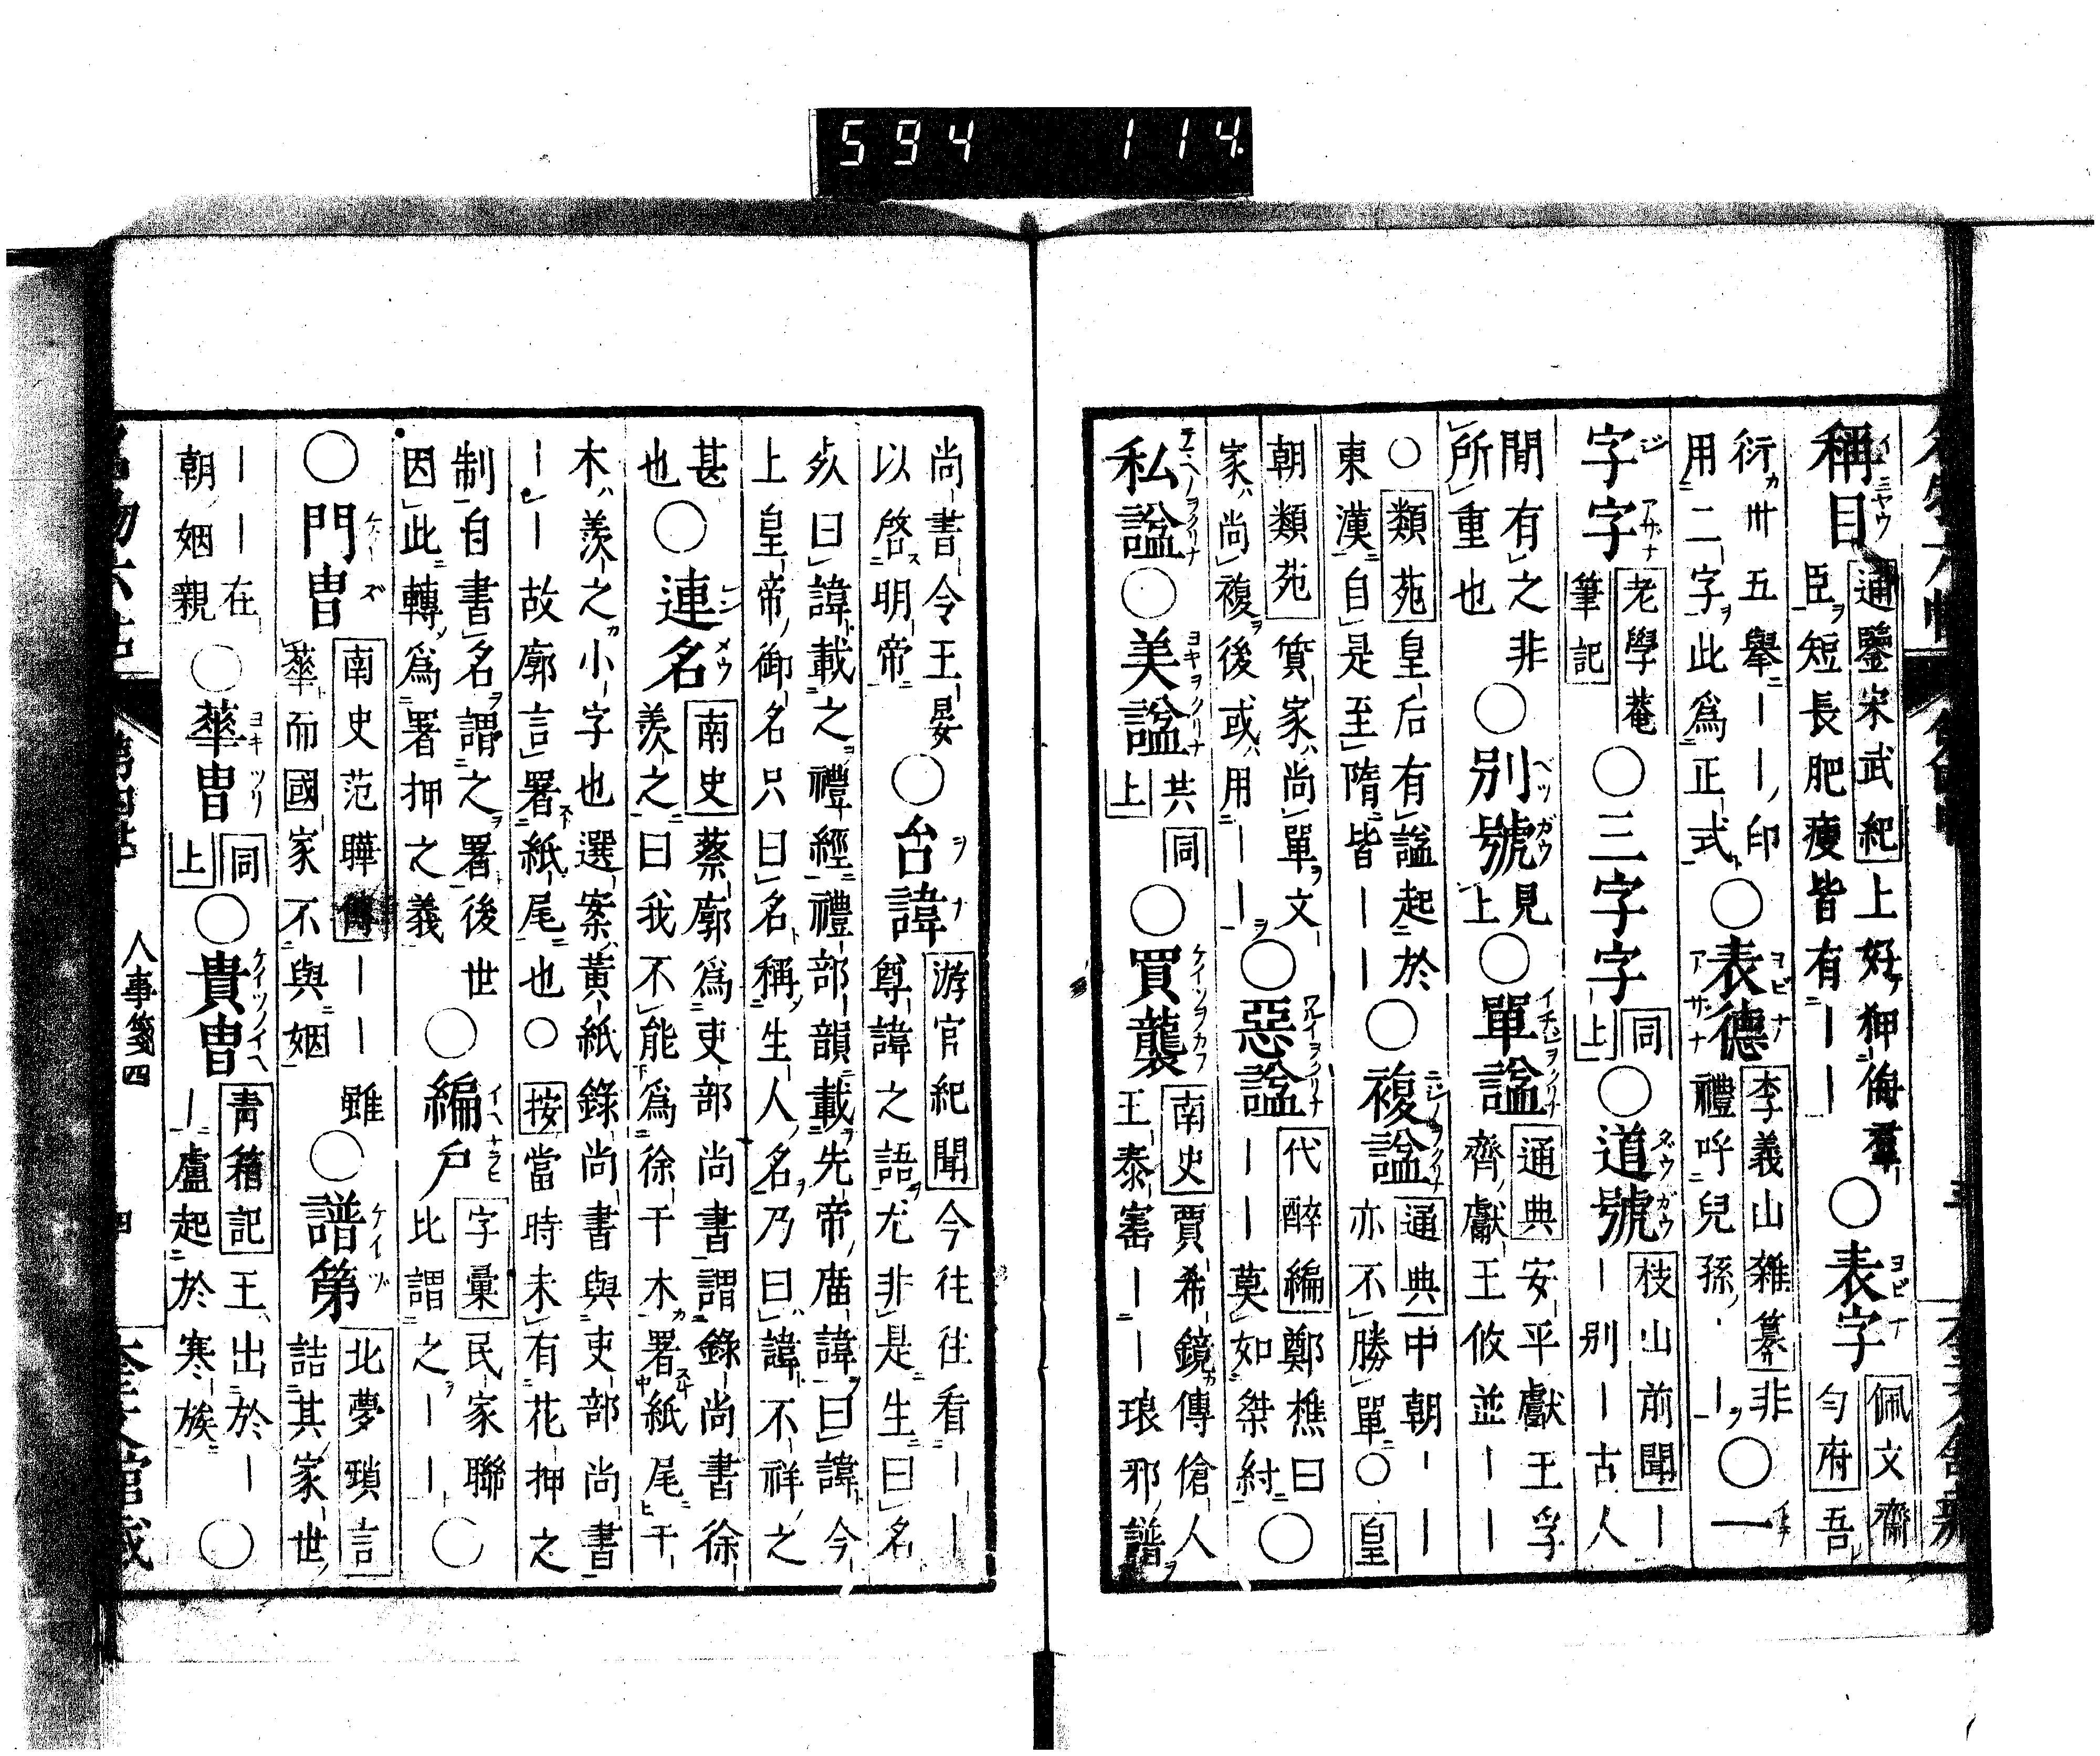 594 114
稱目 通鑒宋武紀上好狎侮羣
臣短長肥瘦皆有｜｜○表字 佩文齋
勻府 吾
衍卅五舉｜｜印○表德 李義山雜纂 非
用二字此爲正式 禮呼兒孫｜｜○一
字字 老學菴
筆記 ○三字字 同
上 ○道號 枝山前聞｜
｜別｜古人
間有之非
所重也○別號 見
上 ○單諡 通典 安平獻王孚
齊獻王攸並｜｜
○類苑 皇后有諡起於
東漢自是至隋皆｜｜○複諡 通典 中朝｜｜
亦不勝單○皇
朝類苑 質家尚單文
家尚複後或用｜｜○惡諡 代醉編 鄭樵曰
｜｜莫如桀紂○
私諡○美諡 共同
上 ○買襲 南史 賈希鏡傳傖人
王泰寳｜｜琅邪譜
尚書令王晏
以啓明帝○台諱 游官紀聞 今往往看｜｜
尊諱之語尤非是生曰名
死曰諱載之禮經禮部韻載先帝庿諱曰諱今
上皇帝御名只曰名稱生人名乃曰諱不祥之
甚
也○連名 南史 蔡廓爲吏部尚書謂錄尚書徐
羨之曰我不能爲徐干木署紙尾干
木羨之小字也選案黃紙錄尚書與吏部尚書
｜｜故廓言署紙尾也○按當時未有花押之
制自書名謂之署後世
因此轉爲署押之義○編戶 字彙 民家聯
比謂之｜｜○
○門冑 南史范曄傳｜｜雖
華而國家不與姻○譜第 北夢瑣言
詰其家世
｜｜在
朝姻親○華冑 同
上 ○貴冑 青箱記 王出於｜
｜盧起於寒族○
人事箋四
四